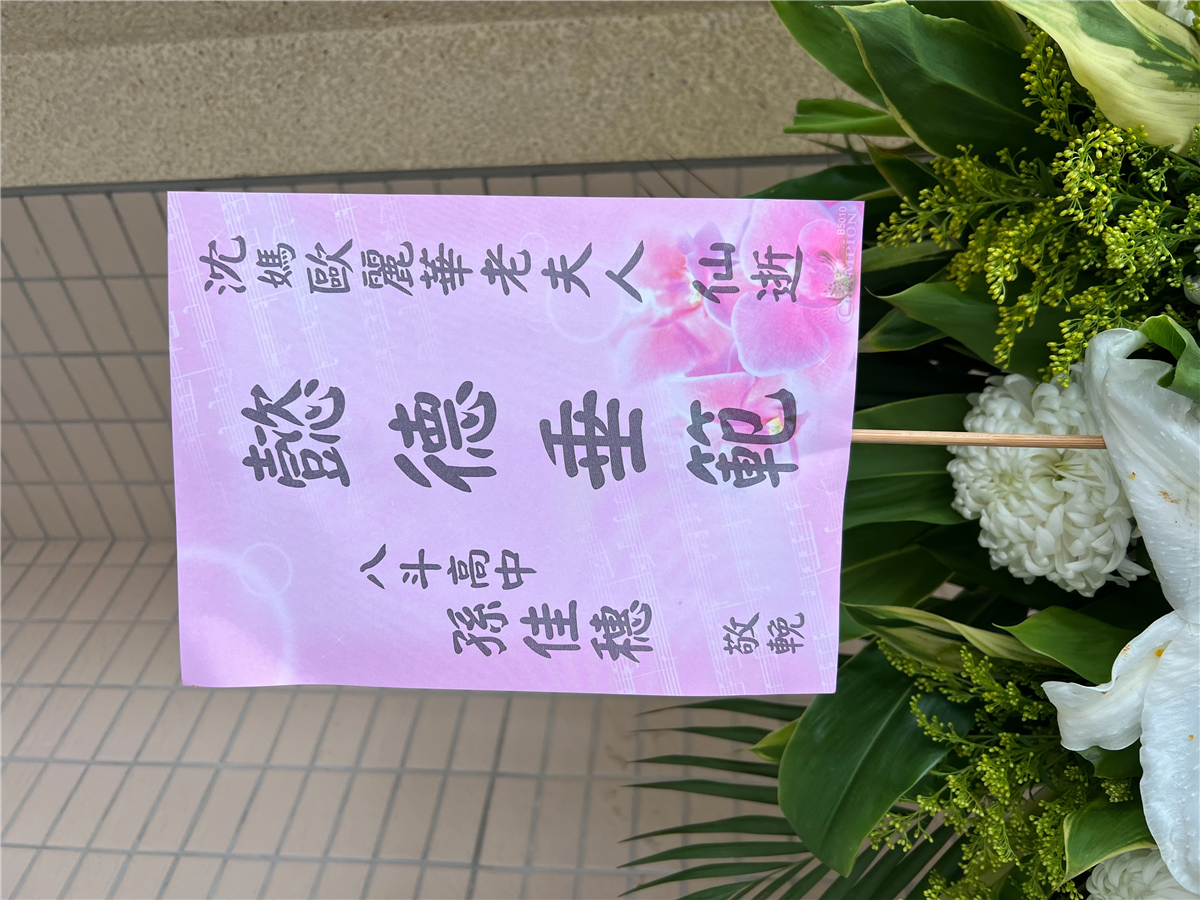 沈媽歐麗華老夫人仙逝
懿德垂範
八斗高中
孫佳穗
敬輓
CHAMPION
BS010